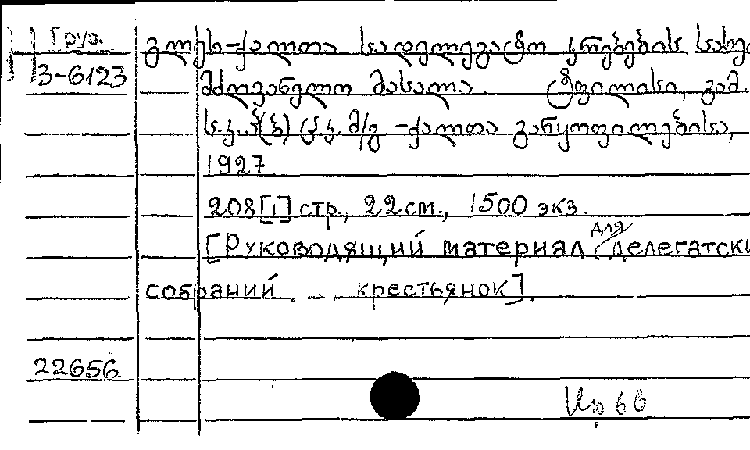 Груз.
გლეხ-ქალთა სადელეგატო კრებების სახე
3-6123
მძღვანელო მასალა. ტფილისი, გამ.
ს.კ.პ(ბ) ც.კ. მ/გ -ქალთა განყოფილებისა,
1927
208[1] стр., 22 см., 1500 экз.
[Руководящий материал для делегатски
собраний ... крестьянок].
22656